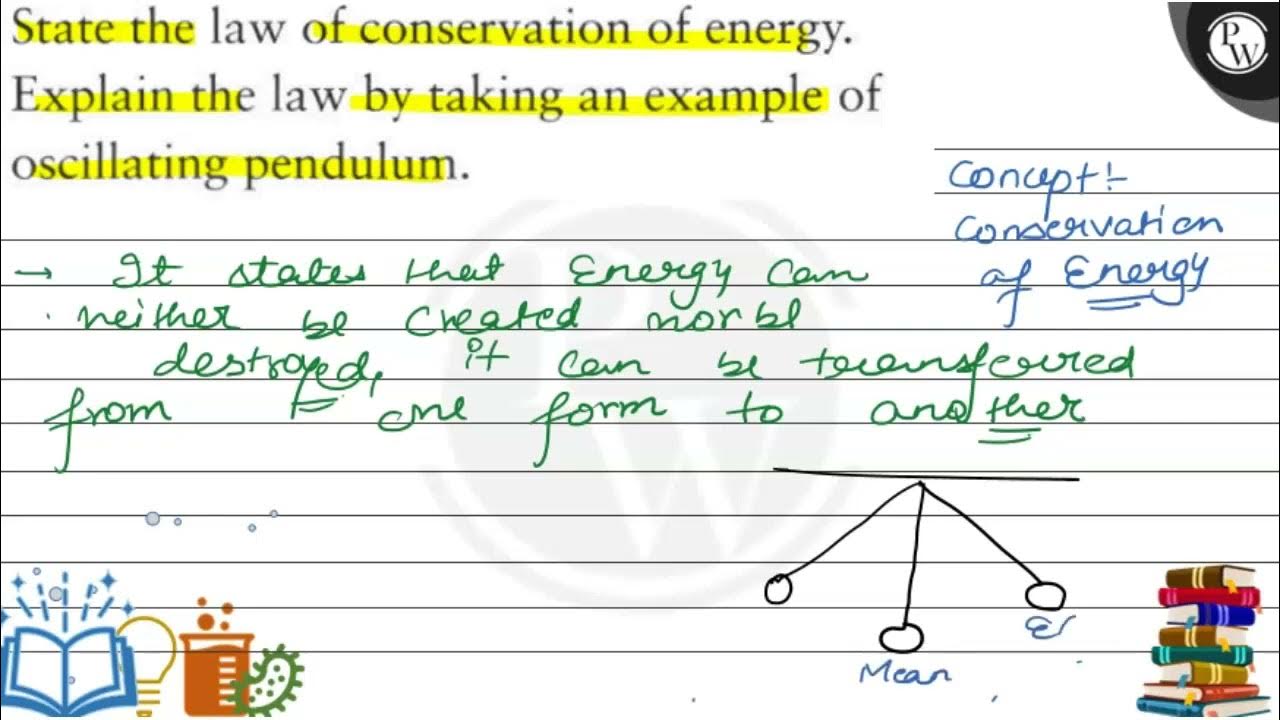 State the law of conservation of energy.
Explain the law by taking an example of
oscillating pendulum.
PW
Concept :-
Conservation
of Energy
→ It states that Energy can
neither be created nor be
destroyed, it can be transferred
from one form to another
Mean